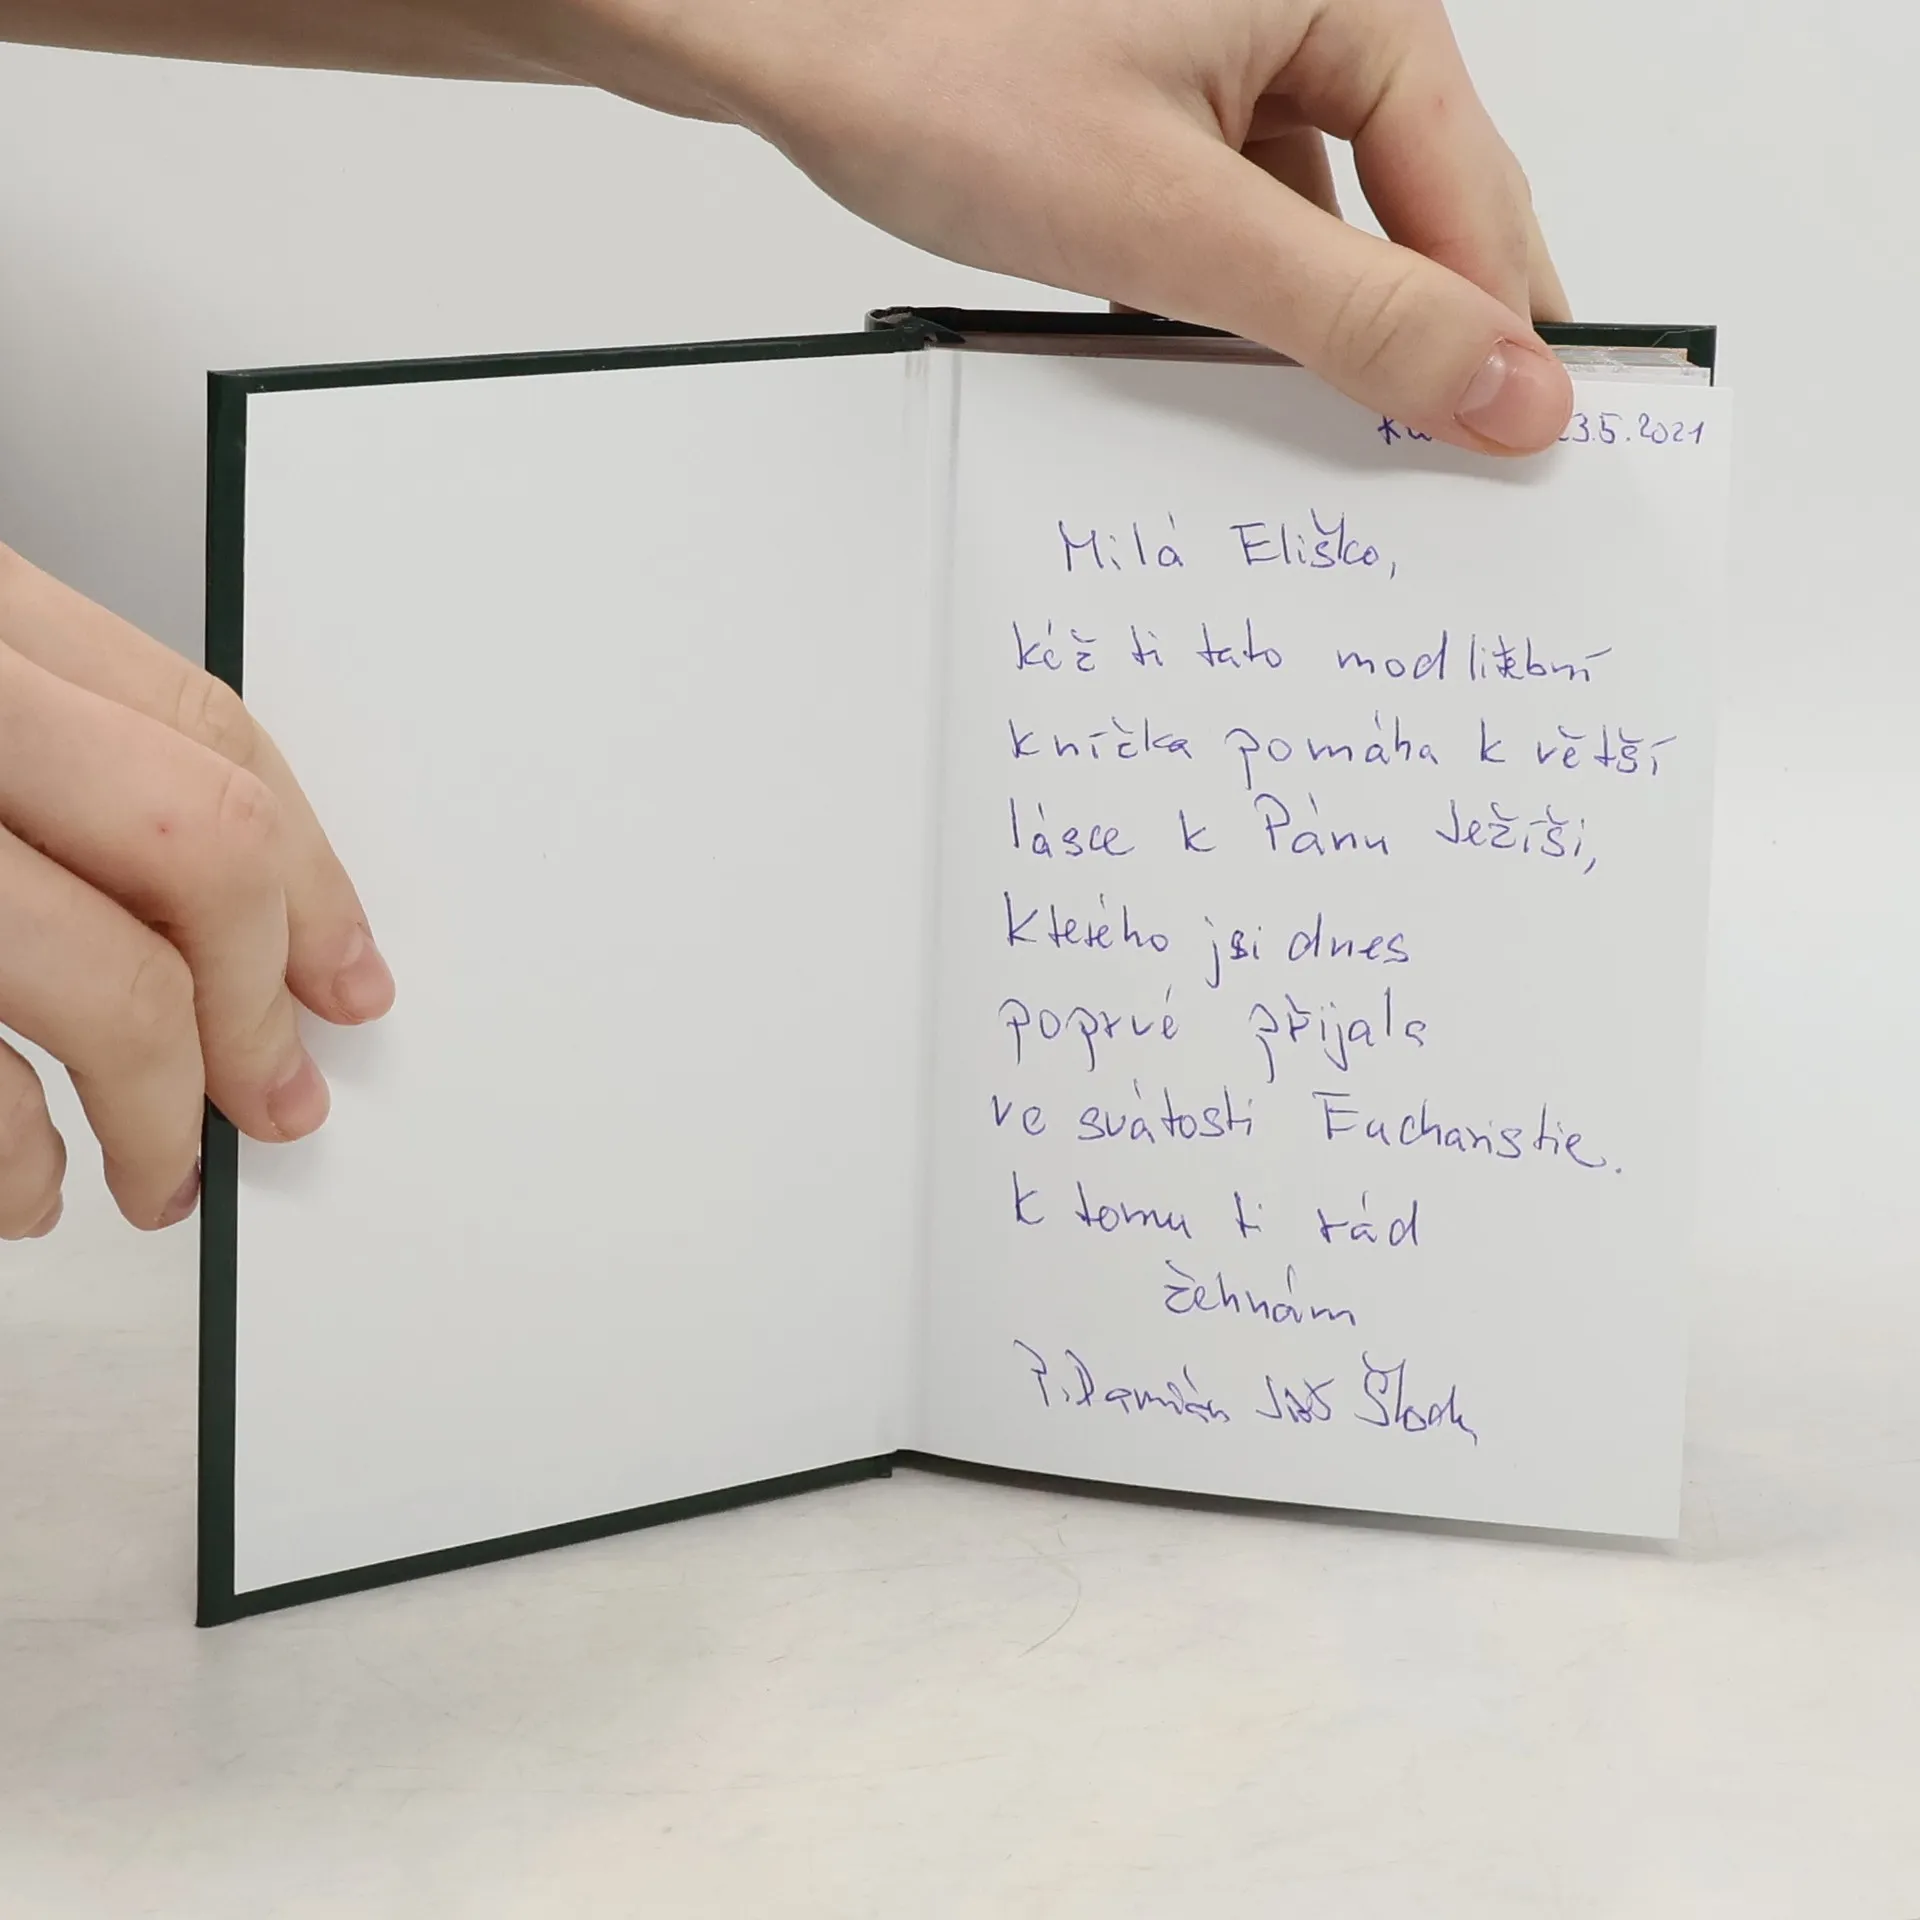 23.5.2021
Milá Eliško,
kéž ti tato modlitební
knížka pomáhá k větší
lásce k Pánu Ježíši,
kterého jsi dnes
poprvé přijala
ve svátosti Eucharistie.
K tomu ti rád
žehnám
P. Damián Jiří Škoda